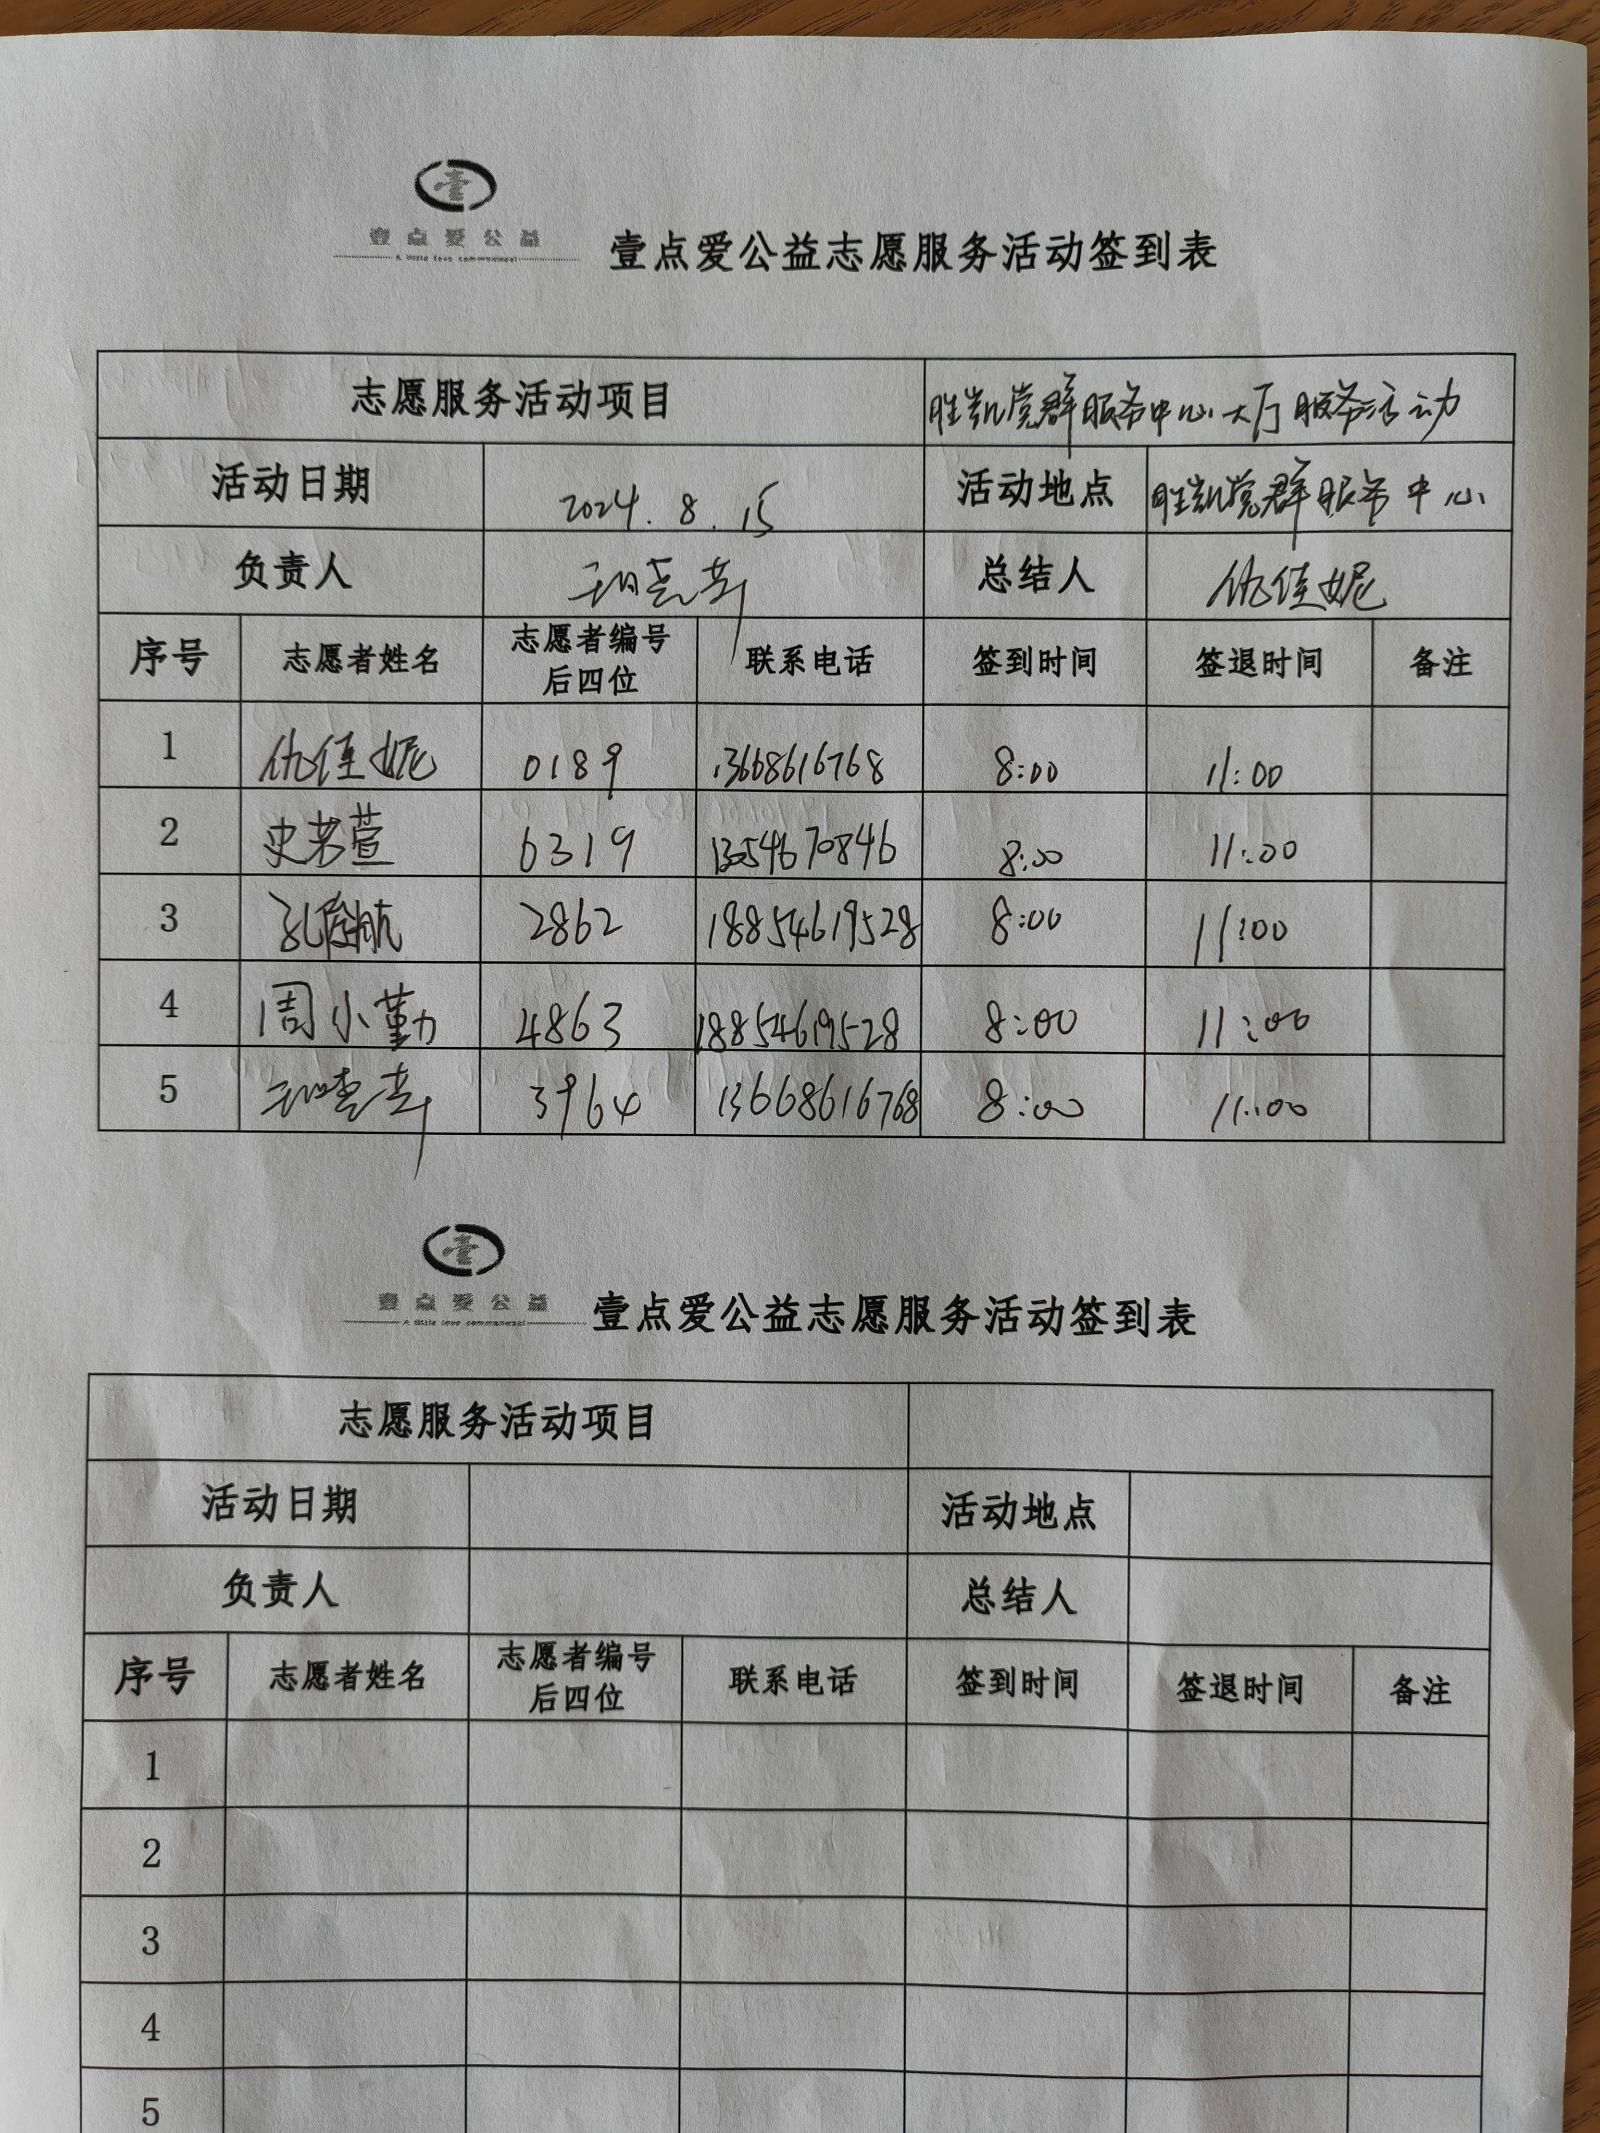 壹
壹点爱公益
壹点爱公益志愿服务活动签到表
志愿服务活动项目 胜凯党群服务中心大厅服务活动
活动日期 2024.8.15 活动地点 胜凯党群服务中心
负责人 总结人 仇佳妮
序号 志愿者姓名 志愿者编号后四位 联系电话 签到时间 签退时间 备注
1 仇佳妮 0189 13668616768 8:00 11:00
2 史若萱 6319 13054670846 8:00 11:00
3 2862 18854619528 8:00 11:00
4 周小勤 4863 18854619528 8:00 11:00
5 3964 13668616768 8:00 11:00
壹
壹点爱公益
壹点爱公益志愿服务活动签到表
志愿服务活动项目
活动日期 活动地点
负责人 总结人
序号 志愿者姓名 志愿者编号后四位 联系电话 签到时间 签退时间 备注
1
2
3
4
5